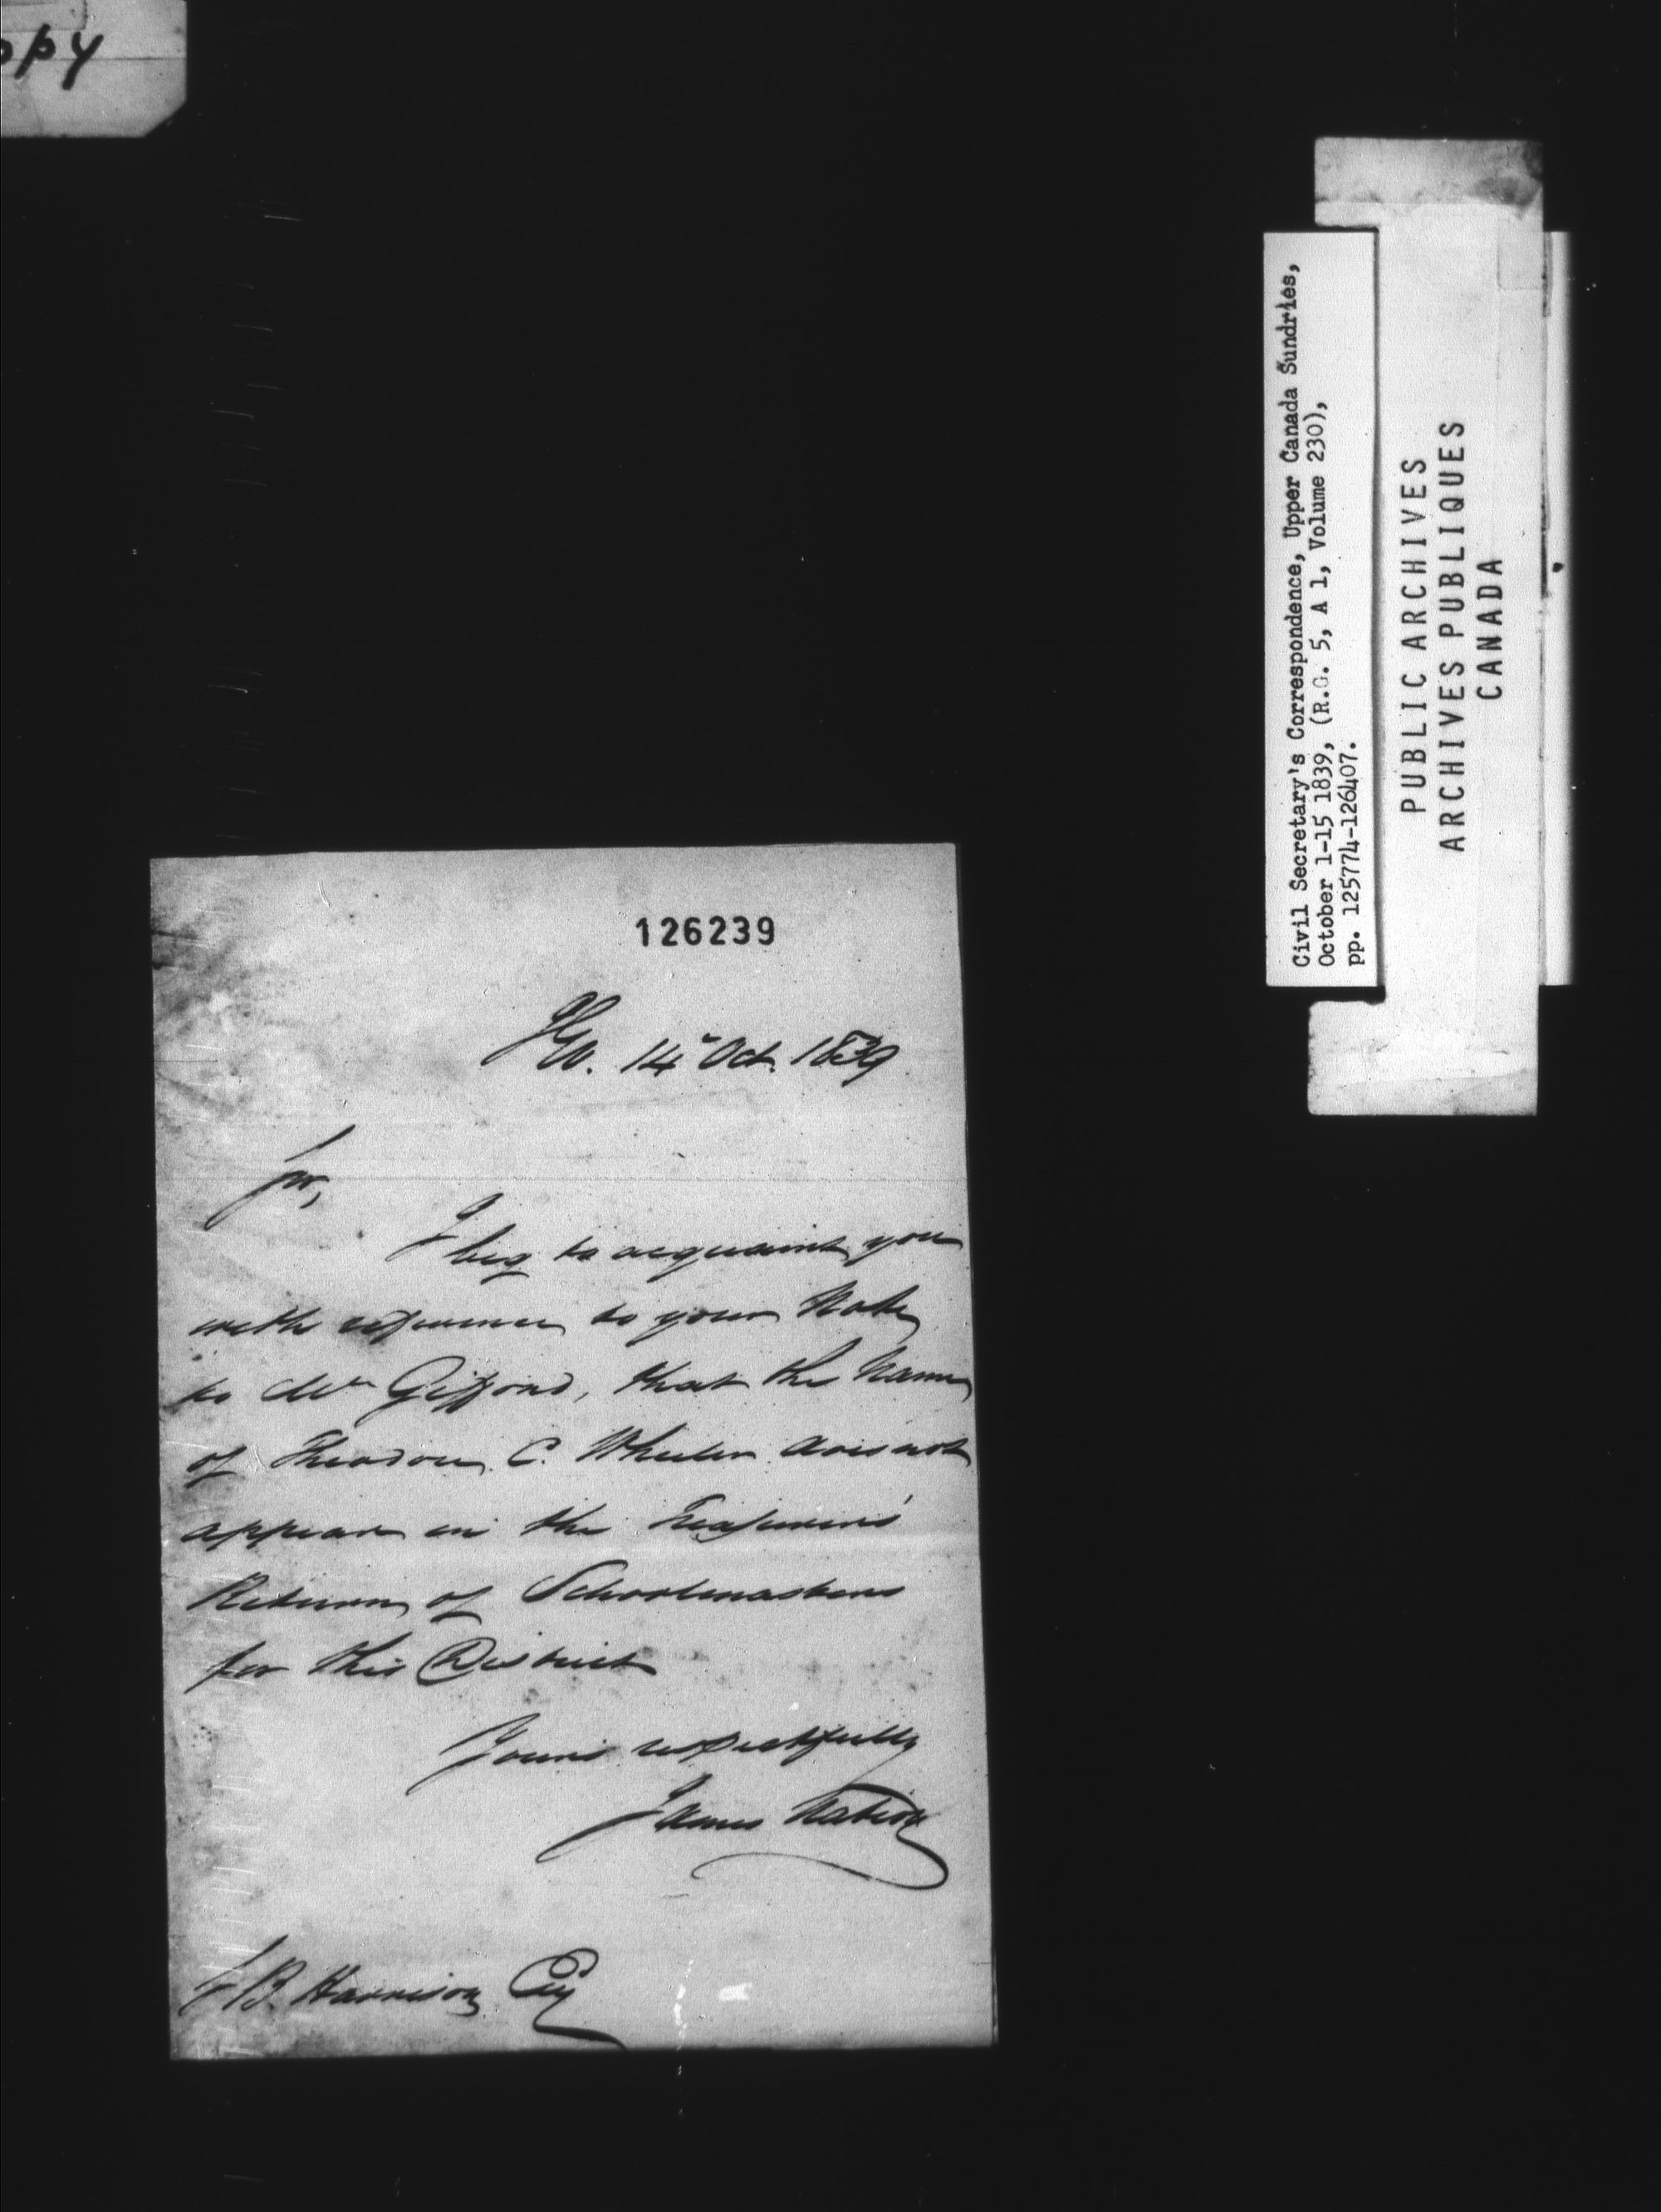 opy
Civil Secretary's Correspondence, Upper Canada Sundries,
October 1-15 1839, (R.G. 5, A 1, Volume 230),
pp. 125774-126407.
PUBLIC ARCHIVES
ARCHIVES PUBLIQUES
CANADA
126239
14 Oct. 1839
Sir,
I beg to acquaint you
with reference to your Note
to Mr Gifford, that the Name
of Theodore C. Wheeler does not
appear in the Treasurers'
Return of Schoolmasters
for this District
Yours respectfully
James Nation
S B. Harrison Esq